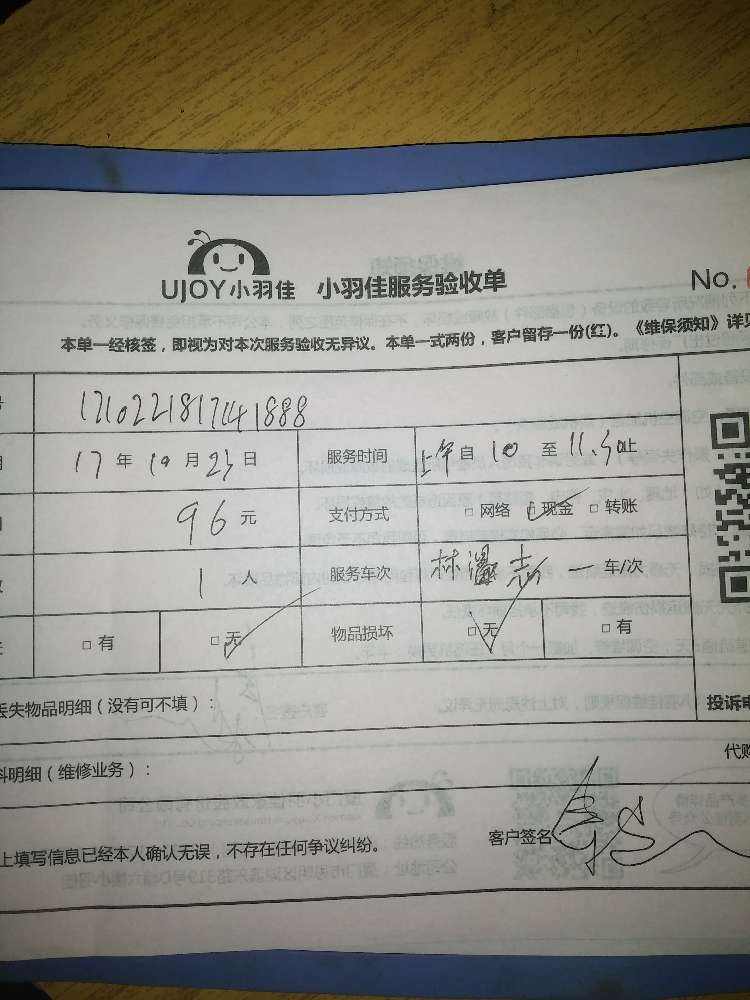 UJOY小羽佳 小羽佳服务验收单 No.
本单一经核签，即视为对本次服务验收无异议。本单一式两份，客户留存一份(红)。《维保须知》详见
号 171022181741888
期 17年10月23日 服务时间 上午自10至11.30止
96元 支付方式 □网络 □现金 □转账
1人 服务车次 林瀛志 一 车/次
□有 □无 物品损坏 □无 □有
丢失物品明细（没有可不填）： 投诉电
料明细（维修业务）： 代购
上填写信息已经本人确认无误，不存在任何争议纠纷。 客户签名